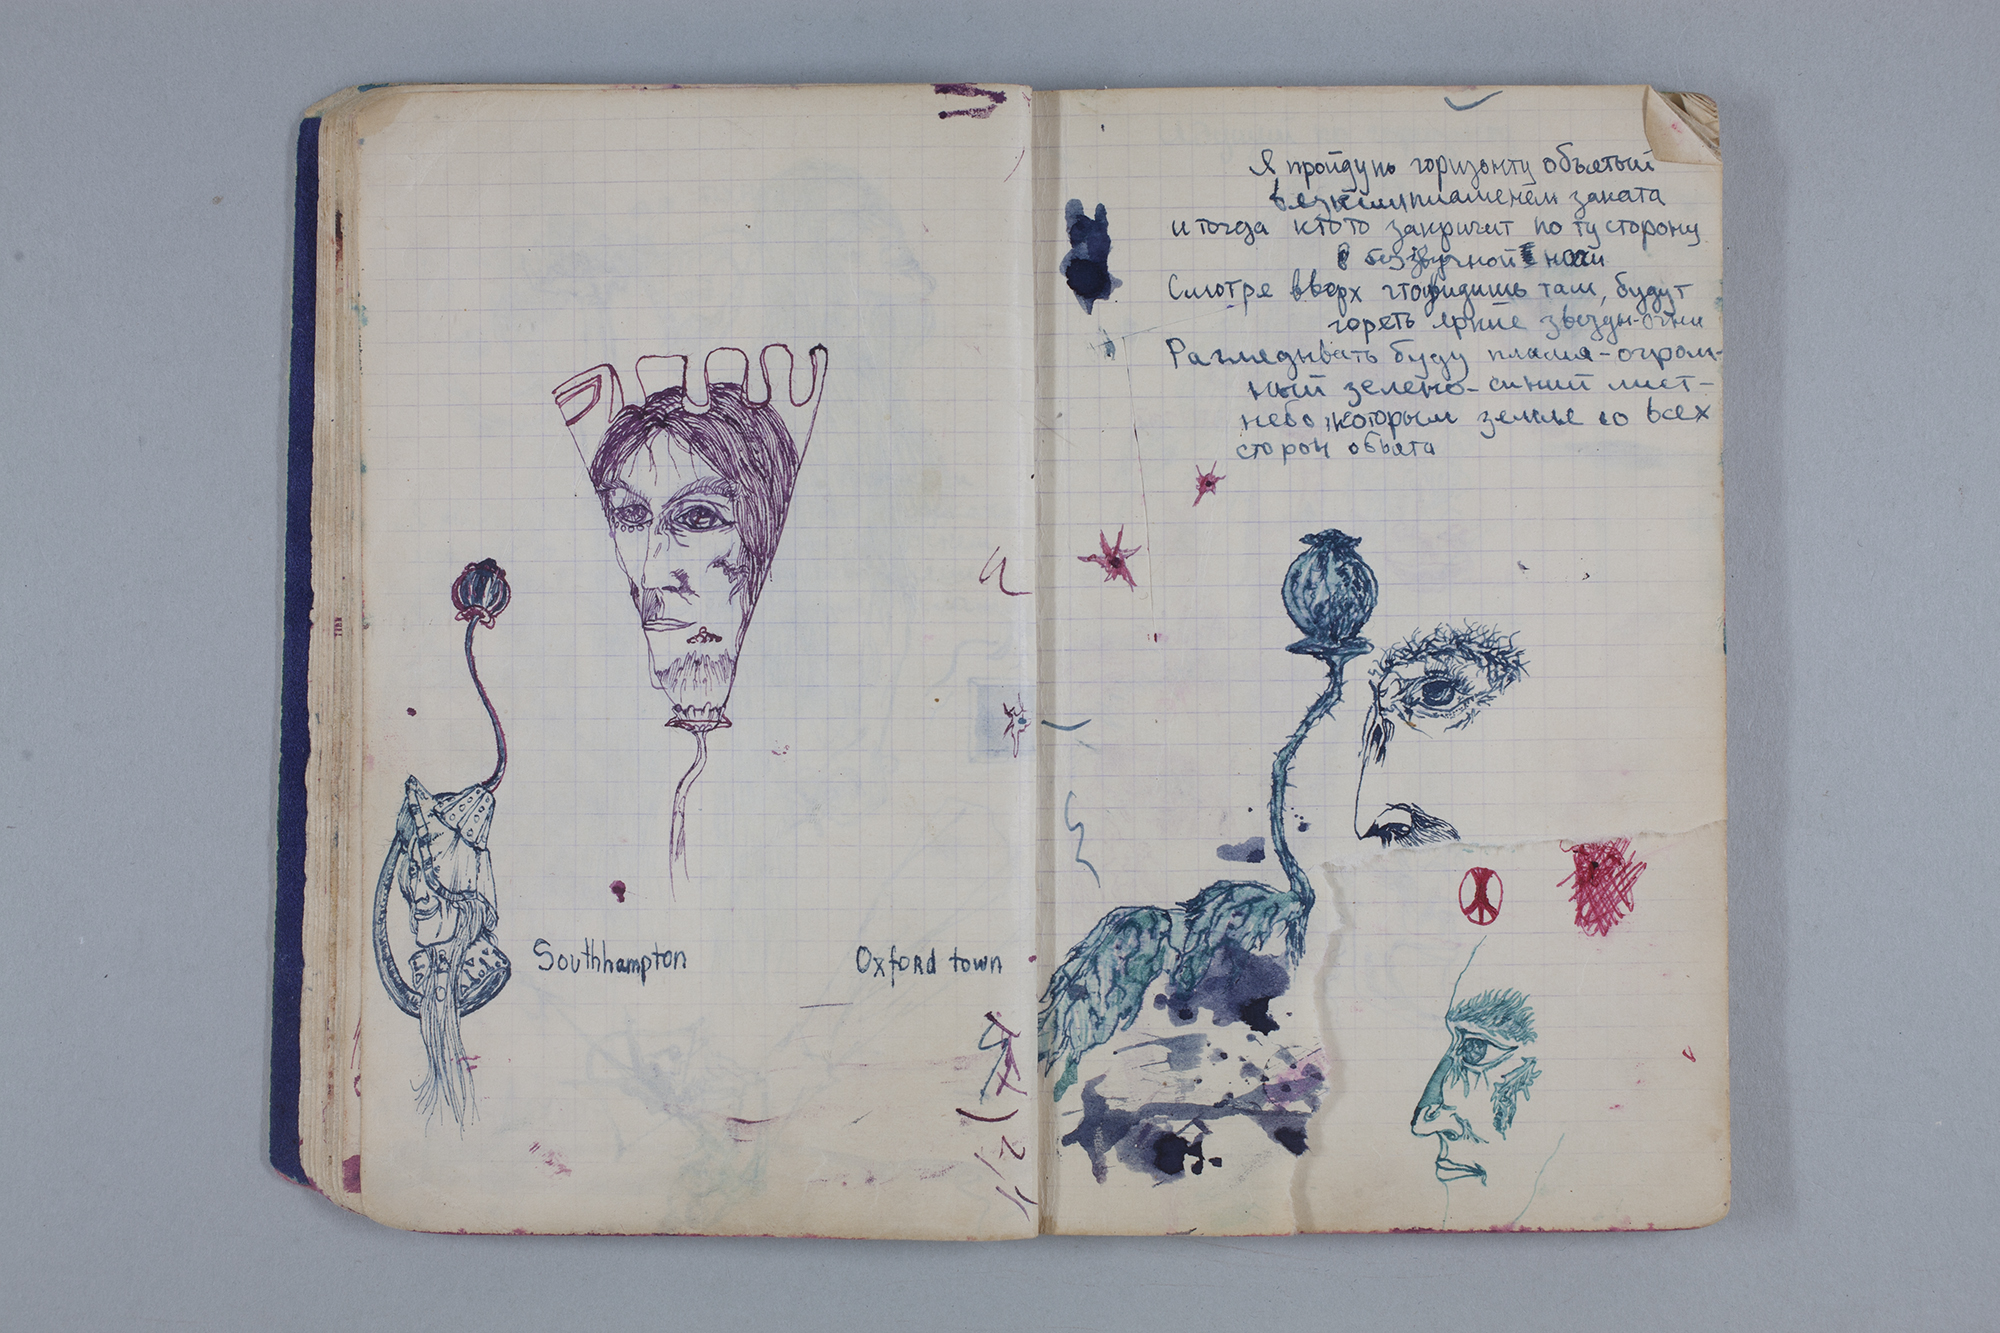 Southhampton
Oxford town
Я пройду по горизонту объятый
пламенем заката
и тогда ктото закричит по ту сторону
в беззвучной ночи
Смотря вверх чтовидишь там, будут
гореть яркие звезды-огни
Разгледывать буду пламя-огром-
ный зелено-синий лист-
небо, которым земля со всех
сторон обьята